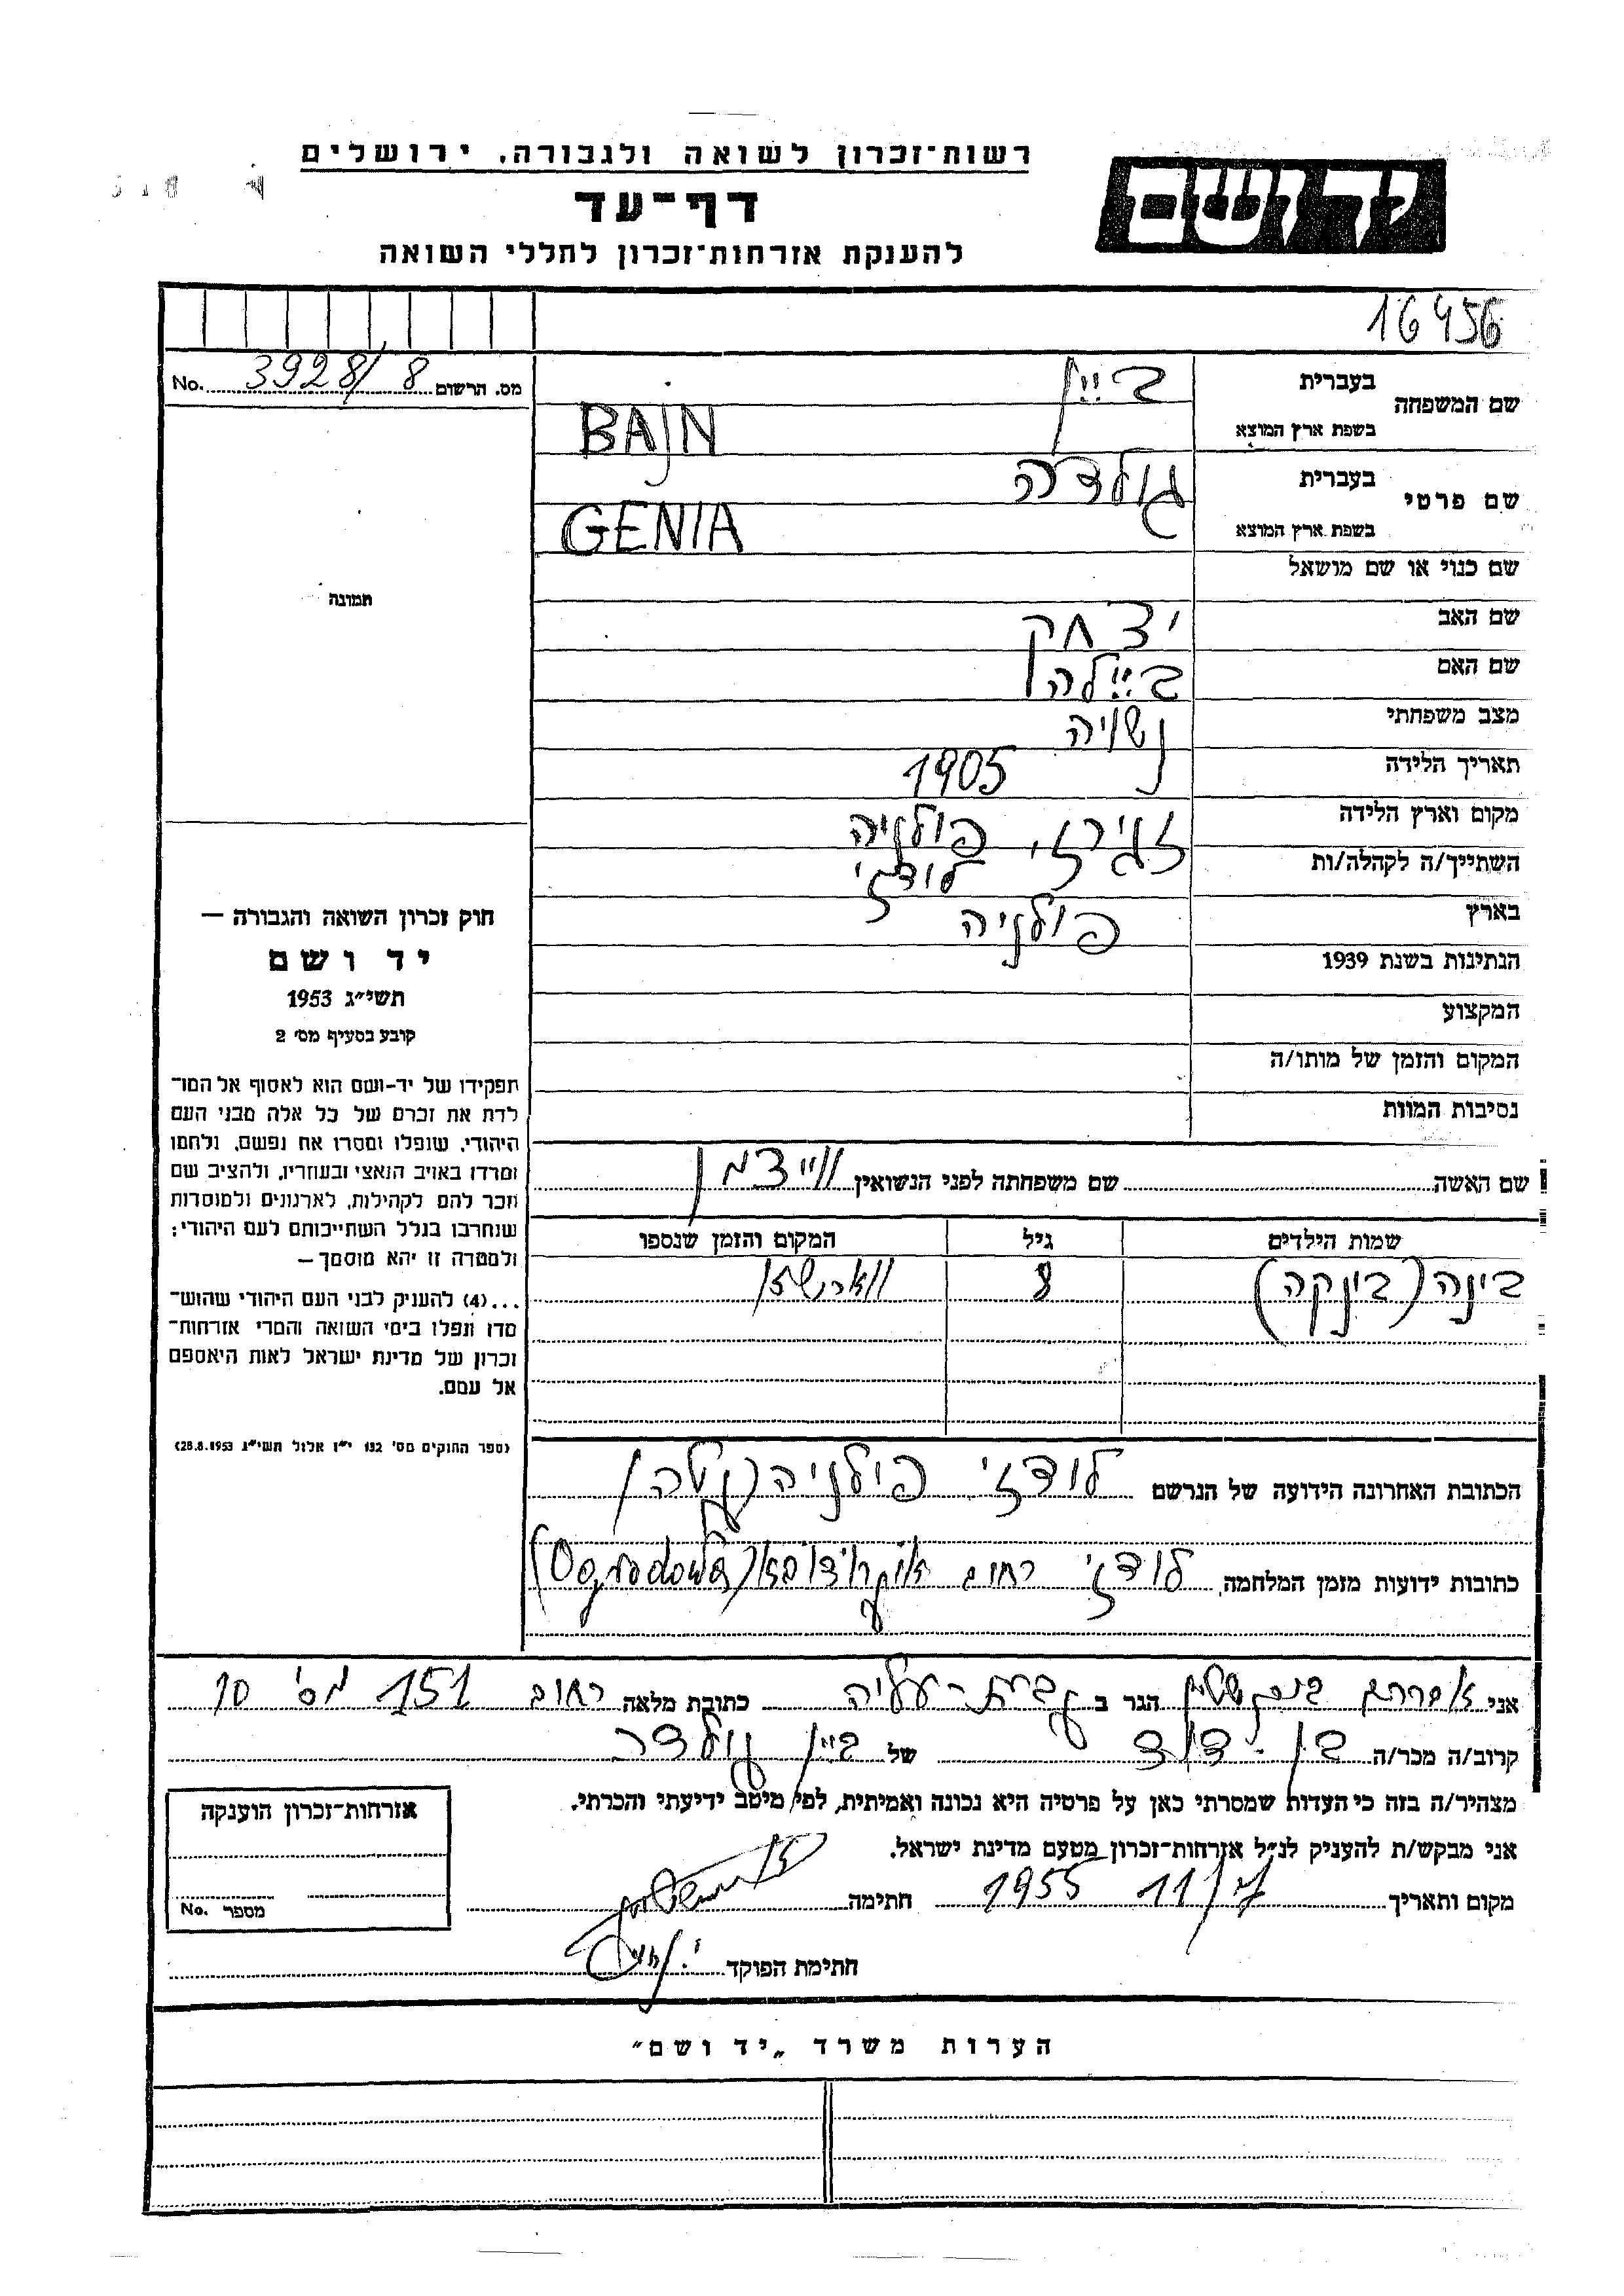 רשות־זכרון לשואה ולגבורה, ירושלים
יד ושם
דף־עד
להענקת אזרחות־זכרון לחללי השואה
16456
No. 3928/8 מס. הרשום
שם המשפחה
בעברית ביין
בשפת ארץ המוצא BAJN
שם פרטי
בעברית גולדה
בשפת ארץ המוצא GENIA
שם כנוי או שם מושאל
שם האב יצחק
שם האם ביילה
מצב משפחתי נשויה
תאריך הלידה 1905
מקום וארץ הלידה זגירז, פולניה
השתייך/ה לקהלה/ות לודז'
בארץ פולניה
הנתינות בשנת 1939
המקצוע
המקום והזמן של מותו/ה
נסיבות המוות
שם האשה שם משפחתה לפני הנשואין ווייצמן
שמות הילדים גיל המקום והזמן שנספו
בינה (בינקה) 8
הכתובת האחרונה הידועה של הנרשם לודז' פולניה (גטה)
כתובות ידועות מזמן המלחמה, לודז' רחוב (Ogrodowa)
תמונה
חוק זכרון השואה והגבורה —
יד ושם
תשי״ג 1953
קובע בסעיף מס׳ 2
תפקידו של יד-ושם הוא לאסוף אל המו־
לדת את זכרם של כל אלה מבני העם
היהודי, שנפלו ומסרו את נפשם, נלחמו
ומרדו באויב הנאצי ובעוזריו, ולהציב שם
וזכר להם לקהילות, לארגונים ולמוסדות
שנחרבו בגלל השתייכותם לעם היהודי;
ולמטרה זו יהא מוסמך —
...(4) להעניק לבני העם היהודי שהוש־
מדו ונפלו בימי השואה והמרי אזרחות־
זכרון של מדינת ישראל לאות היאספם
אל עמם.
(ספר החוקים מס׳ 132 י״ז אלול תשי״ג 28.8.1953)
אני אברהם הגר ב גבעת-עליה כתובת מלאה רחוב 151 מס' 10
קרוב/ה מכר/ה בן-דוד של ביין גולדה
מצהיר/ה בזה כי העדות שמסרתי כאן על פרטיה היא נכונה ואמיתית, לפי מיטב ידיעתי והכרתי.
אני מבקש/ת להעניק לנ״ל אזרחות־זכרון מטעם מדינת ישראל.
מקום ותאריך 1955 חתימה
חתימת הפוקד
אזרחות־זכרון הוענקה
No. מספר
הערות משרד „יד ושם״